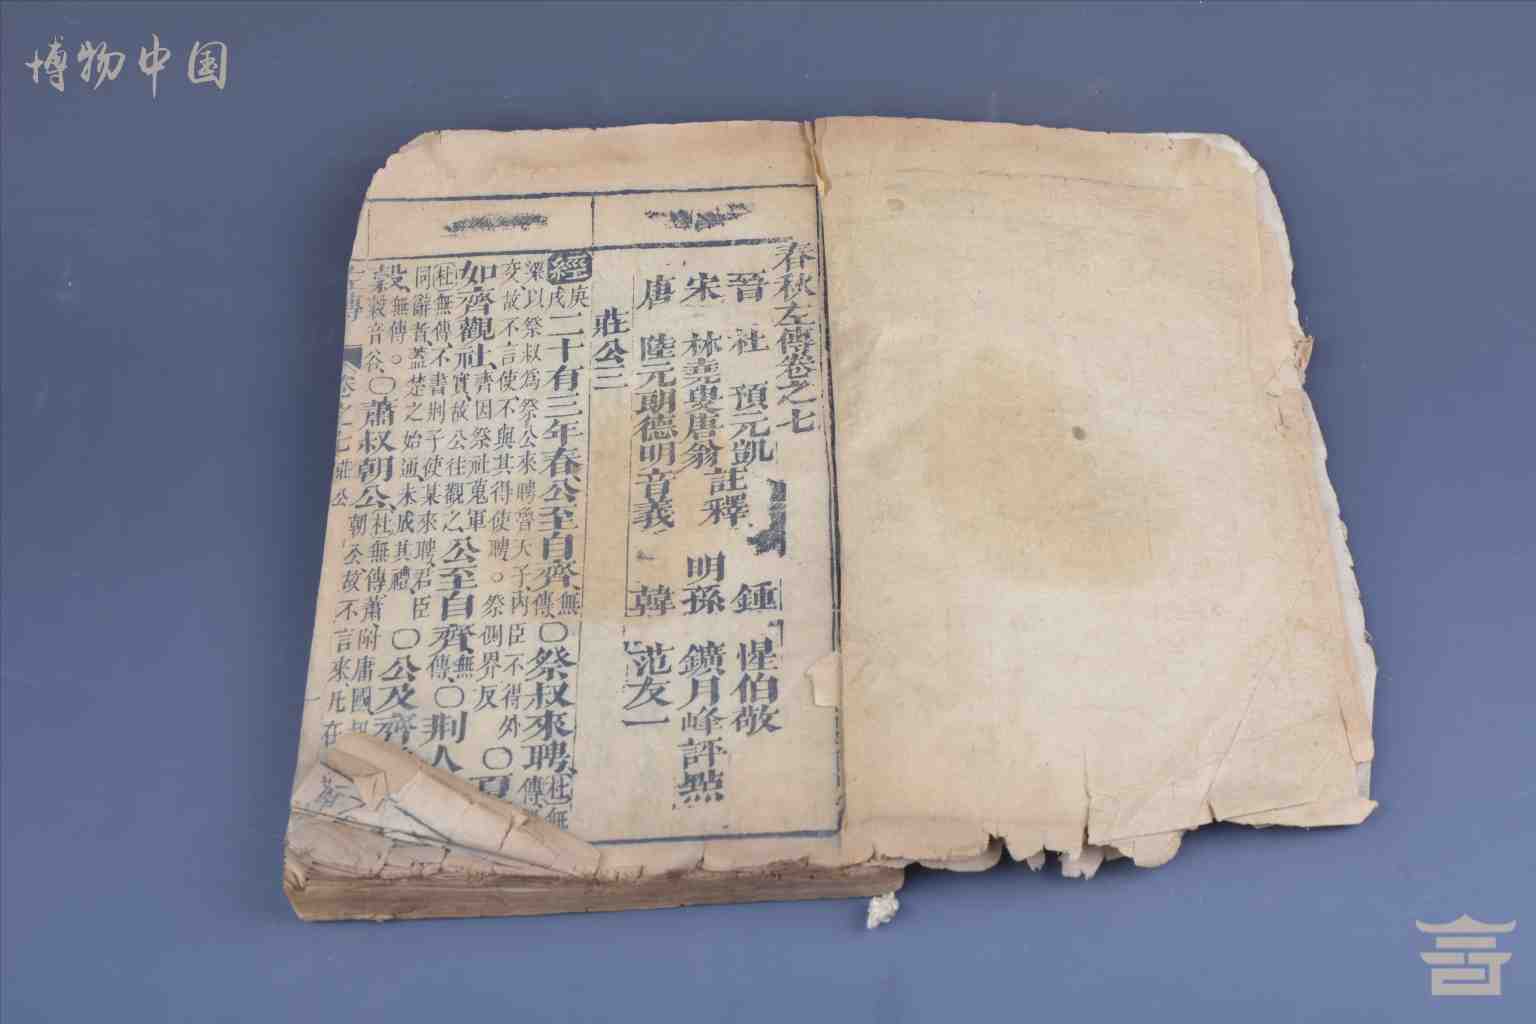 博物中国
春秋左傳卷之七
晉 杜 預元凱 註釋 鍾 惺伯敬
宋 林堯叟唐翁 明孫 鑛月峰評點
唐 陸元朗德明音義 韓 范友一
莊公三
經庚戌二十有三年春公至自齊無傳〇祭叔來聘杜無傳
梁以祭叔爲祭公來聘魯天子內臣不得外
交故不言使不與其得使聘。祭側界反〇夏
如齊觀社齊因祭社蒐軍實故公往觀之公至自齊無傳〇荆人
杜無傳不書荆子使某來聘君臣
同辭者蓋楚之始通未成其禮〇公及齊
穀無傳。〇蕭叔朝公杜無傳蕭附庸國叔
穀音谷朝公故不言來凡在
卷之七 莊公 一